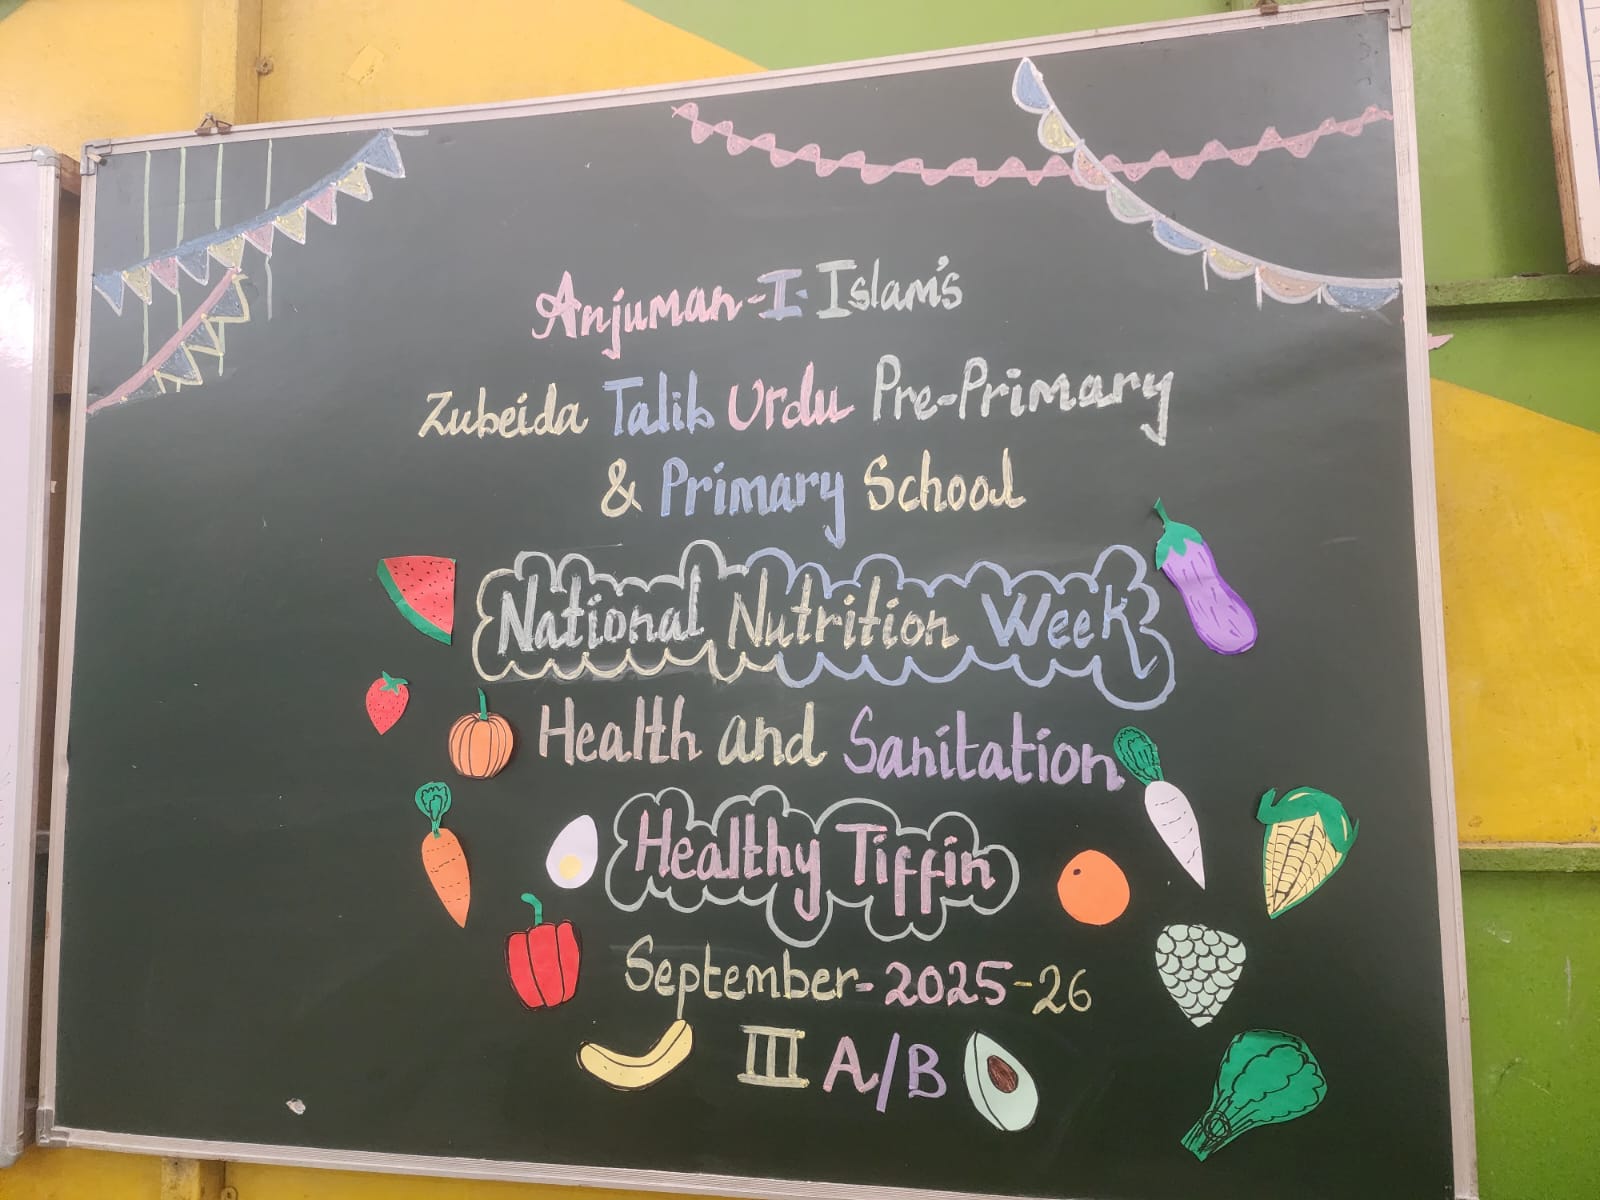 Anjuman-I-Islam's
Zubeida Talib Urdu Pre-Primary
& Primary School
National Nutrition Week
Health and Sanitation
Healthy Tiffin
September-2025-26
III A/B